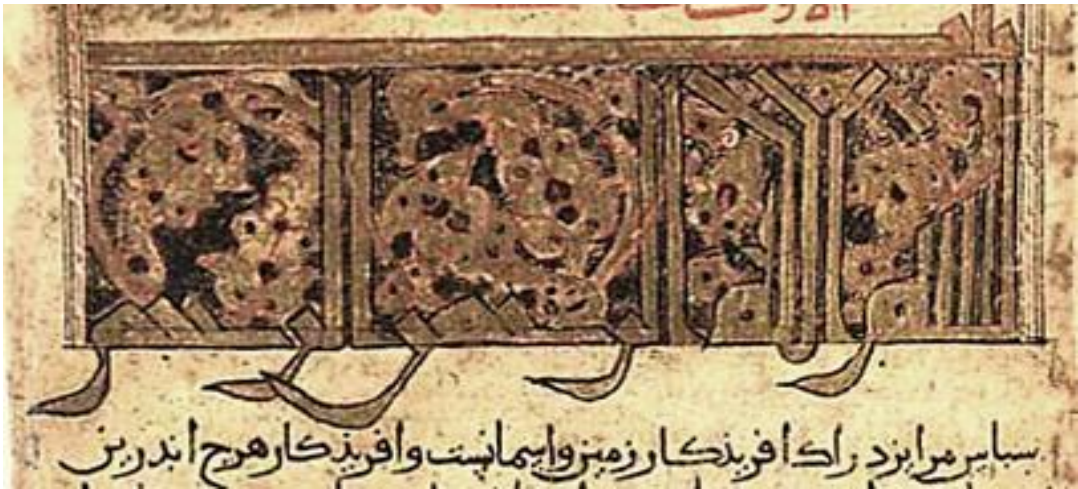 بسم الله الرحمن الرحيم
سباس مر ایزد راک افریذکار زمین واسمانست وافریذکار هرج اندرین